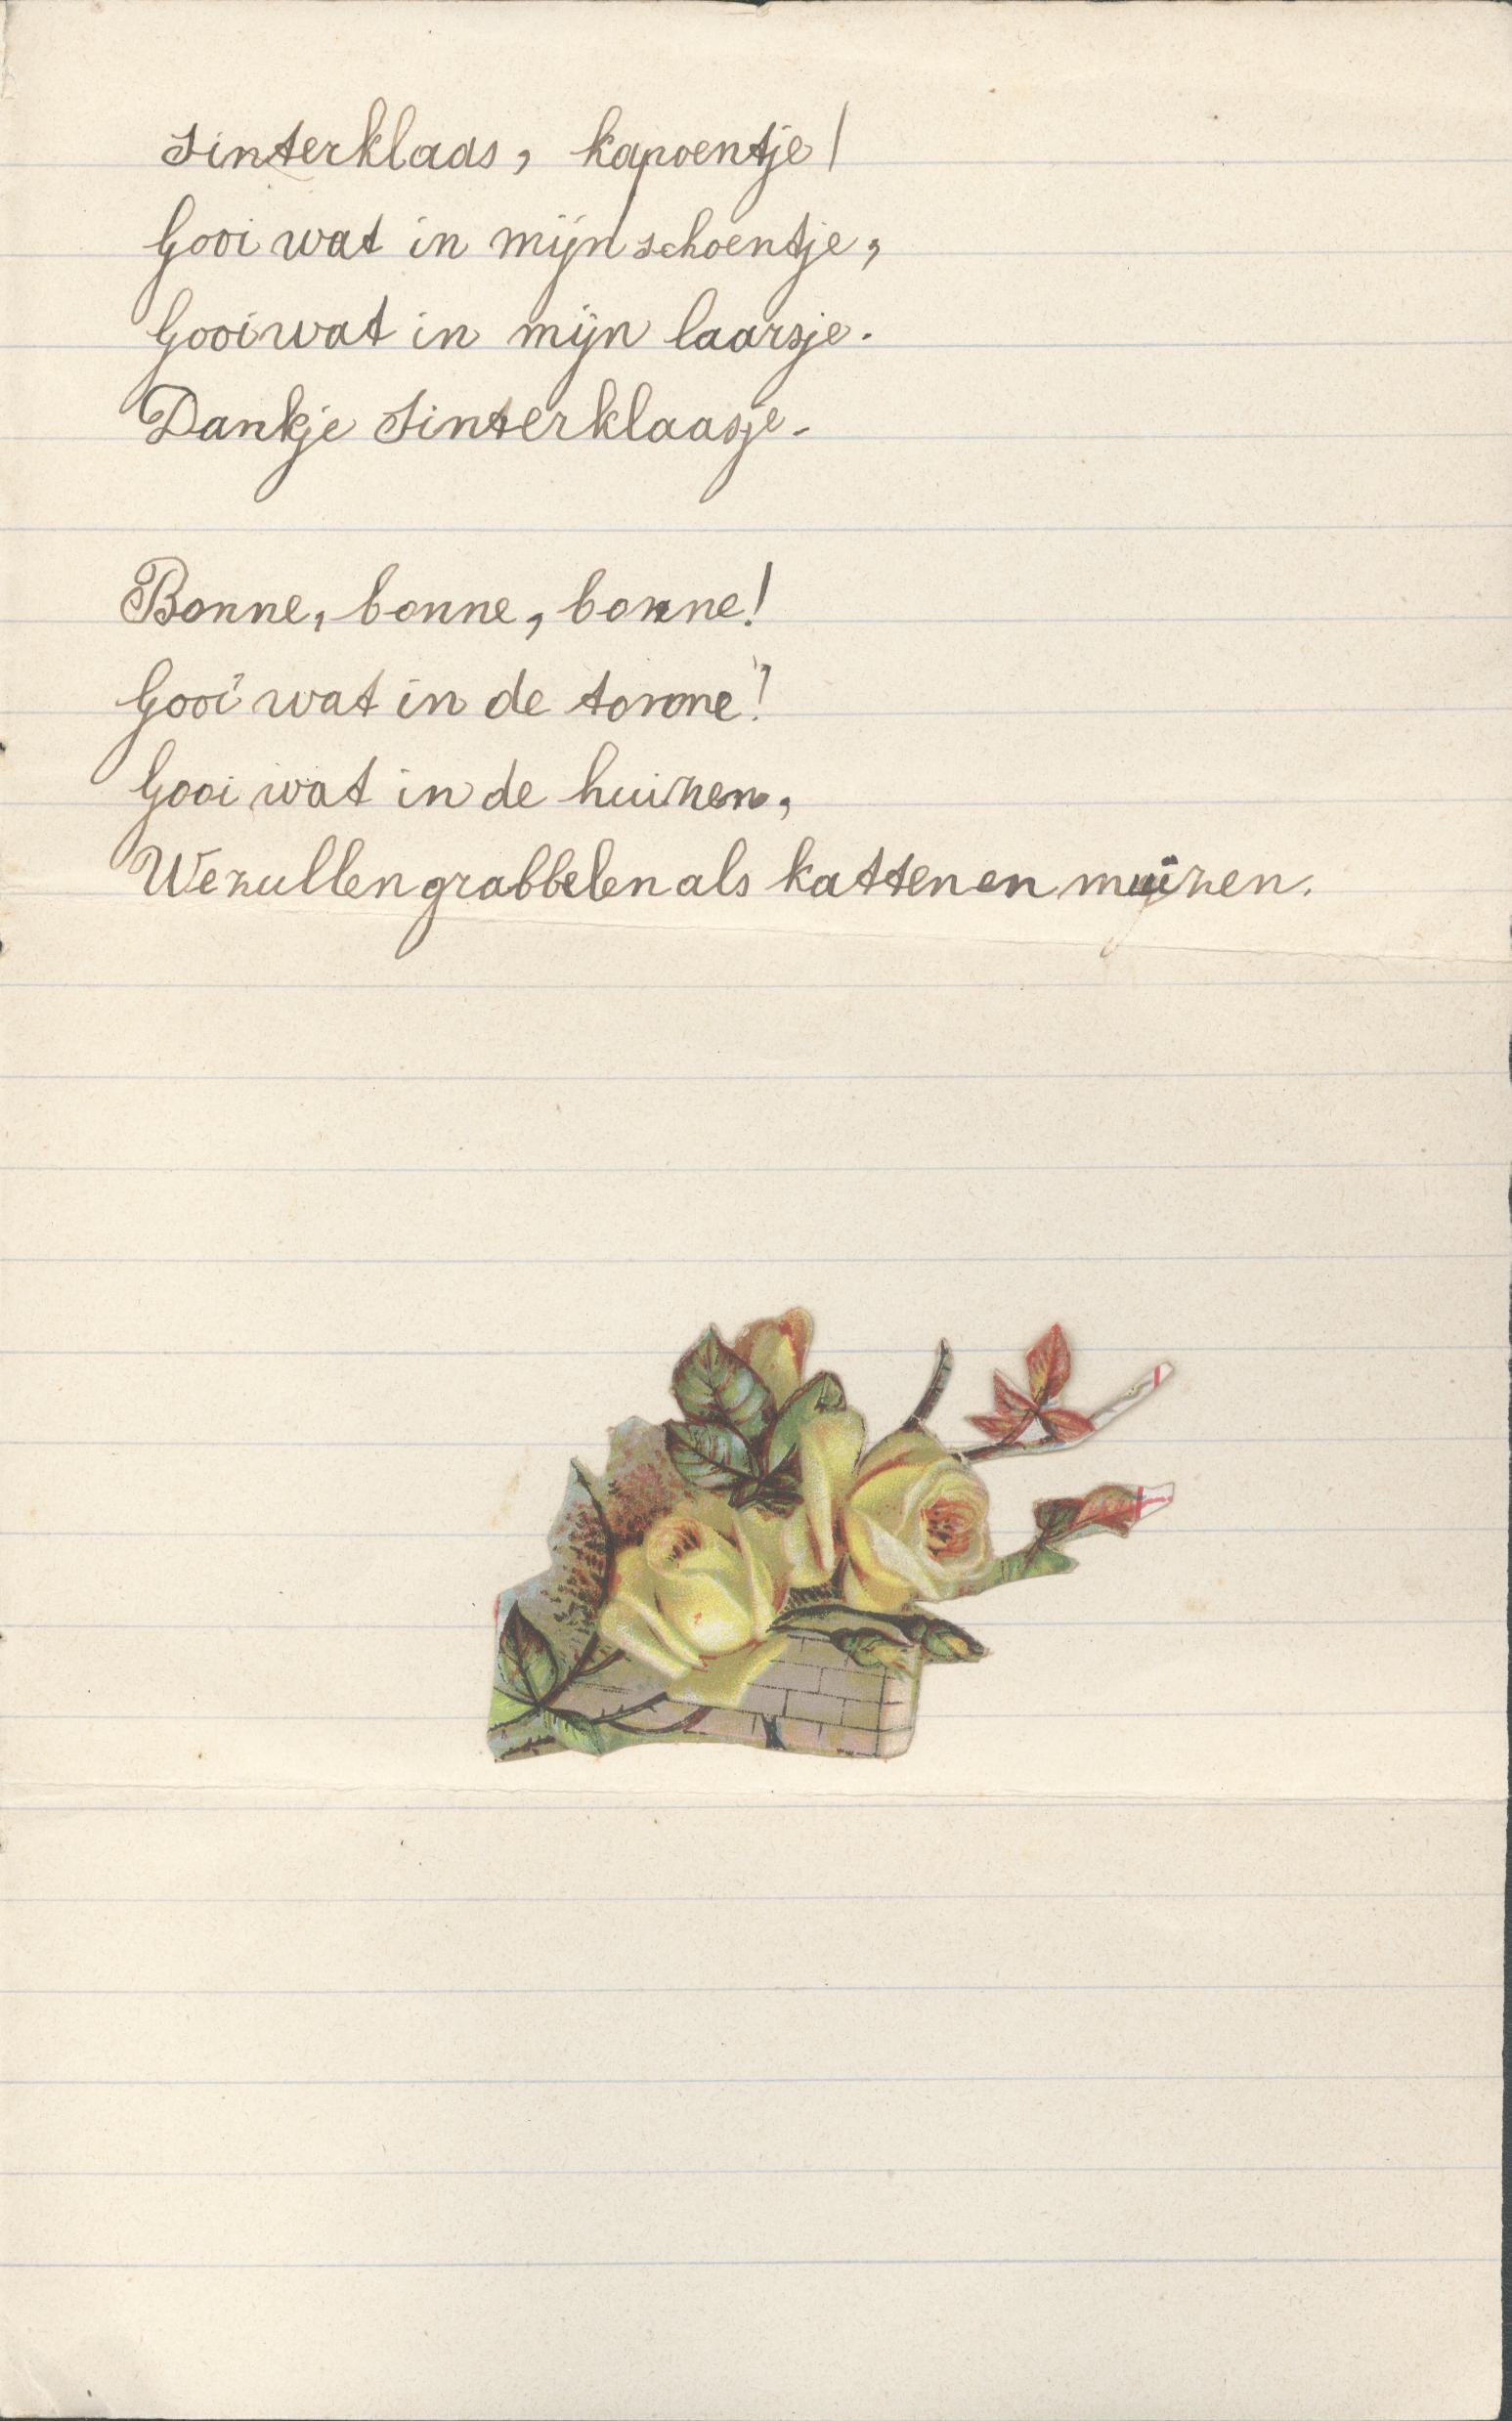 Sinterklaas, kapoentje!
Gooi wat in mijn schoentje,
Gooi wat in mijn laarsje.
Dankje Sinterklaasje.
Bonne, bonne, bonne!
Gooi wat in de tonne!
Gooi wat in de huizen,
We zullen grabbelen als katten en muizen.